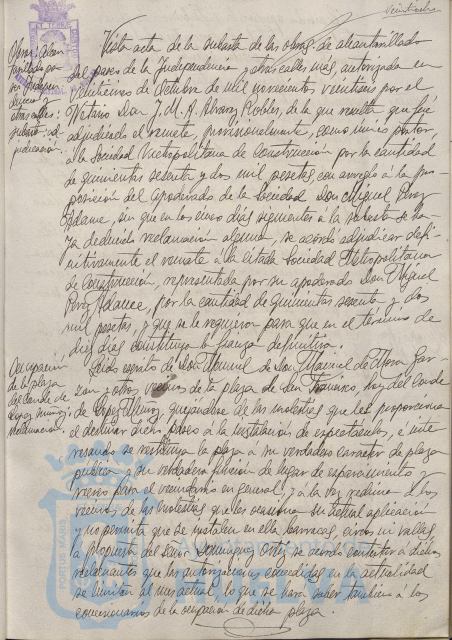 Veintiocho
Obras alcan-
tarillado pa-
seo Indepen-
dencia y
otras calles:
subasta: ad-
judicación.
Vista acta de la subasta de las obras de alcantarillado
del paseo de la Independencia y otras calles más, autorizada en
veintinueve de Octubre de mil novecientos veintiseis por el
Notario Don J. M. A. Alvarez Robles, de la que resulta que fué
adjudicado el remate, provisionalmente, como único postor,
a la Sociedad Metropolitana de Construcción por la cantidad
de quinientas sesenta y dos mil pesetas, con arreglo a la pro-
posición del apoderado de la Sociedad Don Miguel Perez
Adame, sin que en los cinco días siguientes a la subasta se ha-
ya deducido reclamación alguna, se acordó adjudicar defi-
nitivamente el remate a la citada Sociedad Metropolitana
de Construcción, representada por su apoderado Don Miguel
Perez Adame, por la cantidad de quinientas sesenta y dos
mil pesetas, y que se le requiera para que en el término de
diez días constituya la fianza definitiva.
Ocupación
de la plaza
del Conde de
Lopez Muñoz:
Reclamación
Leído escrito de Don Manuel de Mora Gar-
zon y otros vecinos de la plaza de San Francisco, hoy del Conde
de Lopez Muñoz, quejándose de las molestias que les proporciona
el destinar dicho paseo a la instalación de espectáculos, e inte-
resando se restituya la plaza a su verdadero caracter de plaza
publica y su verdadera función de lugar de esparcimiento y
recreo para el vecindario en general, y a la vez redima a los
vecinos de las molestias que les ocasiona su actual aplicación
y no permita que se instalen en ella barracas, circos ni vallas,
a propuesta del Señor Dominguez Ortiz se acordó contestar a dichos
reclamantes que las autorizaciones concedidas en la actualidad
se limitan al mes actual, lo que se hará saber tambien a los
concesionarios de la ocupación de dicha plaza.